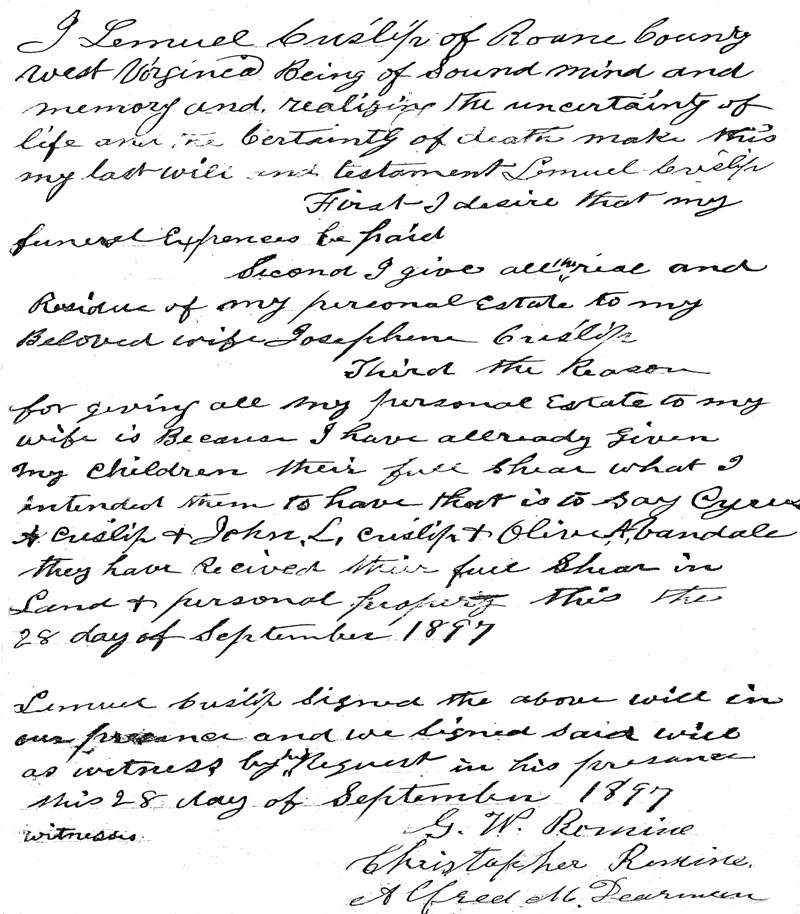 I Lemuel Cuslip of Roane County
West Virginea Being of Sound mind and
memory and realizing the uncertainty of
life and the Certainty of death make this
my last will and testament Lemuel Cuslip
First I desire that my
funeral Expences be paid
Second I give all the real and
Residue of my personal Estate to my
Beloved wife Josephene Cuslip
Third the Reason
for giving all my personal Estate to my
wife is Because I have allready Given
my children their full Shear what I
intended them to have that is to say Cyrus
A cuslip & John. L. cuslip & Olive A. vandale
they have Recived their full Shear in
Land & personal property this the
28 day of September 1897
Lemuel Cuslip Signed the above will in
our presance and we Signed said will
as witness by his Request in his presance
this 28 day of September 1897
witnesses
G. W. Romine
Christopher Romine.
Alfred M. Dearman